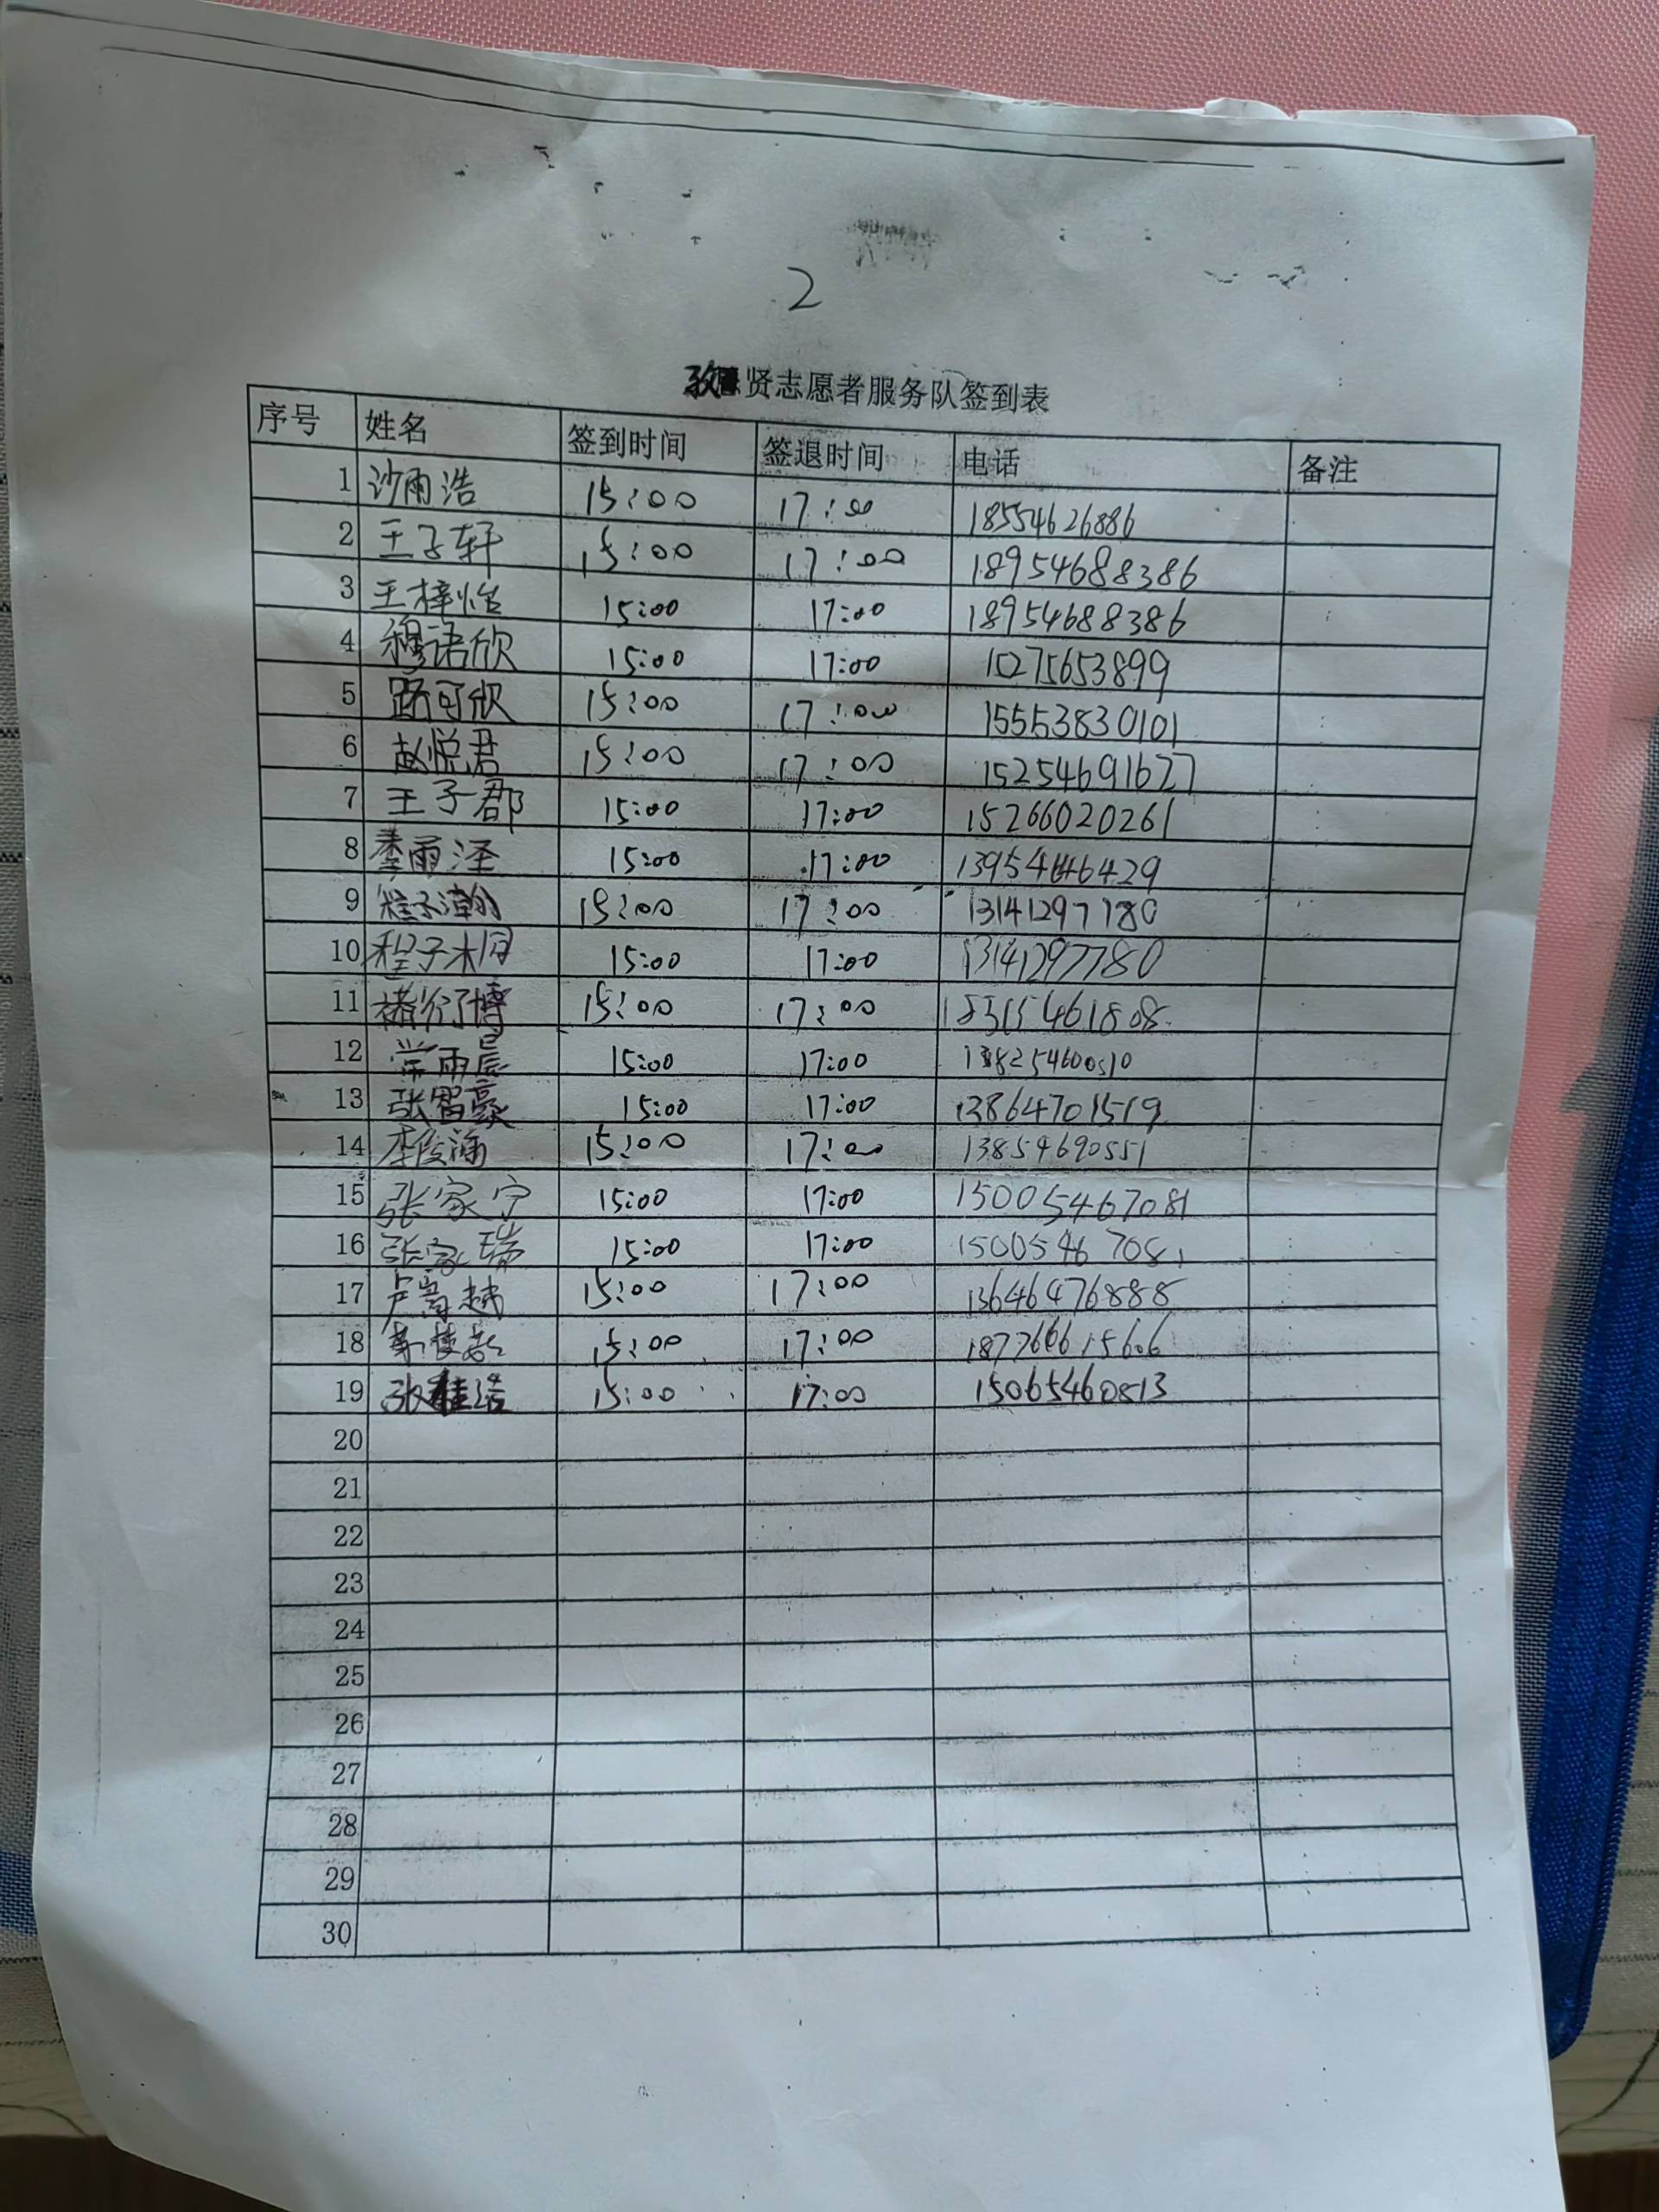 2
贤志愿者服务队签到表
序号 姓名 签到时间 签退时间 电话 备注
1 沙雨浩 15:00 17:00 18554626886
2 王子轩 15:00 17:00 18954688386
3 王梓怡 15:00 17:00 18954688386
4 穆诺欣 15:00 17:00 15275653899
5 路可欣 15:00 17:00 15553830101
6 赵悦君 15:00 17:00 15254691627
7 王子郡 15:00 17:00 15266020261
8 李雨泽 15:00 17:00 13954646429
9 程子瀚 15:00 17:00 13141297780
10 程子桐 15:00 17:00 13141297780
11 褚衍博 15:00 17:00
12 常雨晨 15:00 17:00
13 张智豪 15:00 17:00 13864701519
14 李俊涵 15:00 17:00 13854690551
15 张家宁 15:00 17:00 15005467081
16 张家瑞 15:00 17:00 15005467081
17 15:00 17:00 13646476888
18 15:00 17:00
19 15:00 17:00 15065460813
20
21
22
23
24
25
26
27
28
29
30